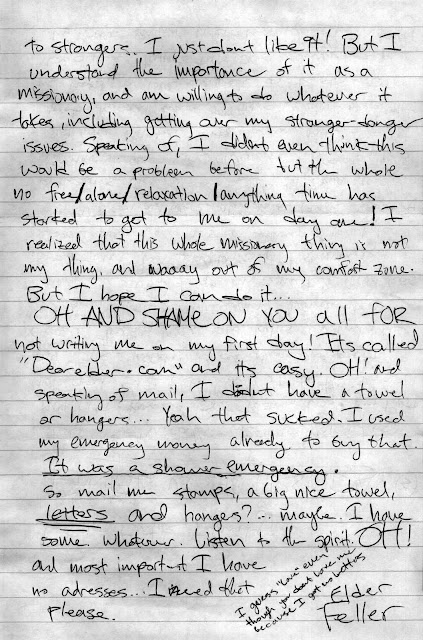 to strangers. I just dont like it! But I
understand the importance of it as a
missionary, and am willing to do whatever it
takes, including getting over my stranger-danger
issues. Speaking of, I didnt even think this
would be a problem before but the whole
no free/alone/relaxation/anything time has
started to get to me on day one! I
realized that this whole missionary thing is not
my thing, and waaay out of my comfort zone.
But I hope I can do it...
OH AND SHAME ON YOU all FOR
not writing me on my first day! Its called
"Dearelder.com" and its easy. OH! and
speaking of mail, I didnt have a towel
or hangers... Yeah that sucked. I used
my emergency money already to buy that.
It was a shower emergency.
So mail me stamps, a big nice towel,
letters and hangers?... maybe. I have
some. whatever. Listen to the spirit. OH!
and most important I have
no adresses... I need that
please.
I guess "love" even
though you dont love me
because I got no letters
Elder
Feller